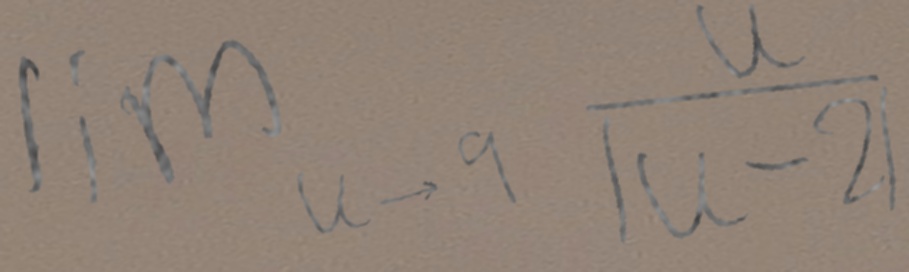 \lim_{u \to 9} \frac{u}{|u-2|}